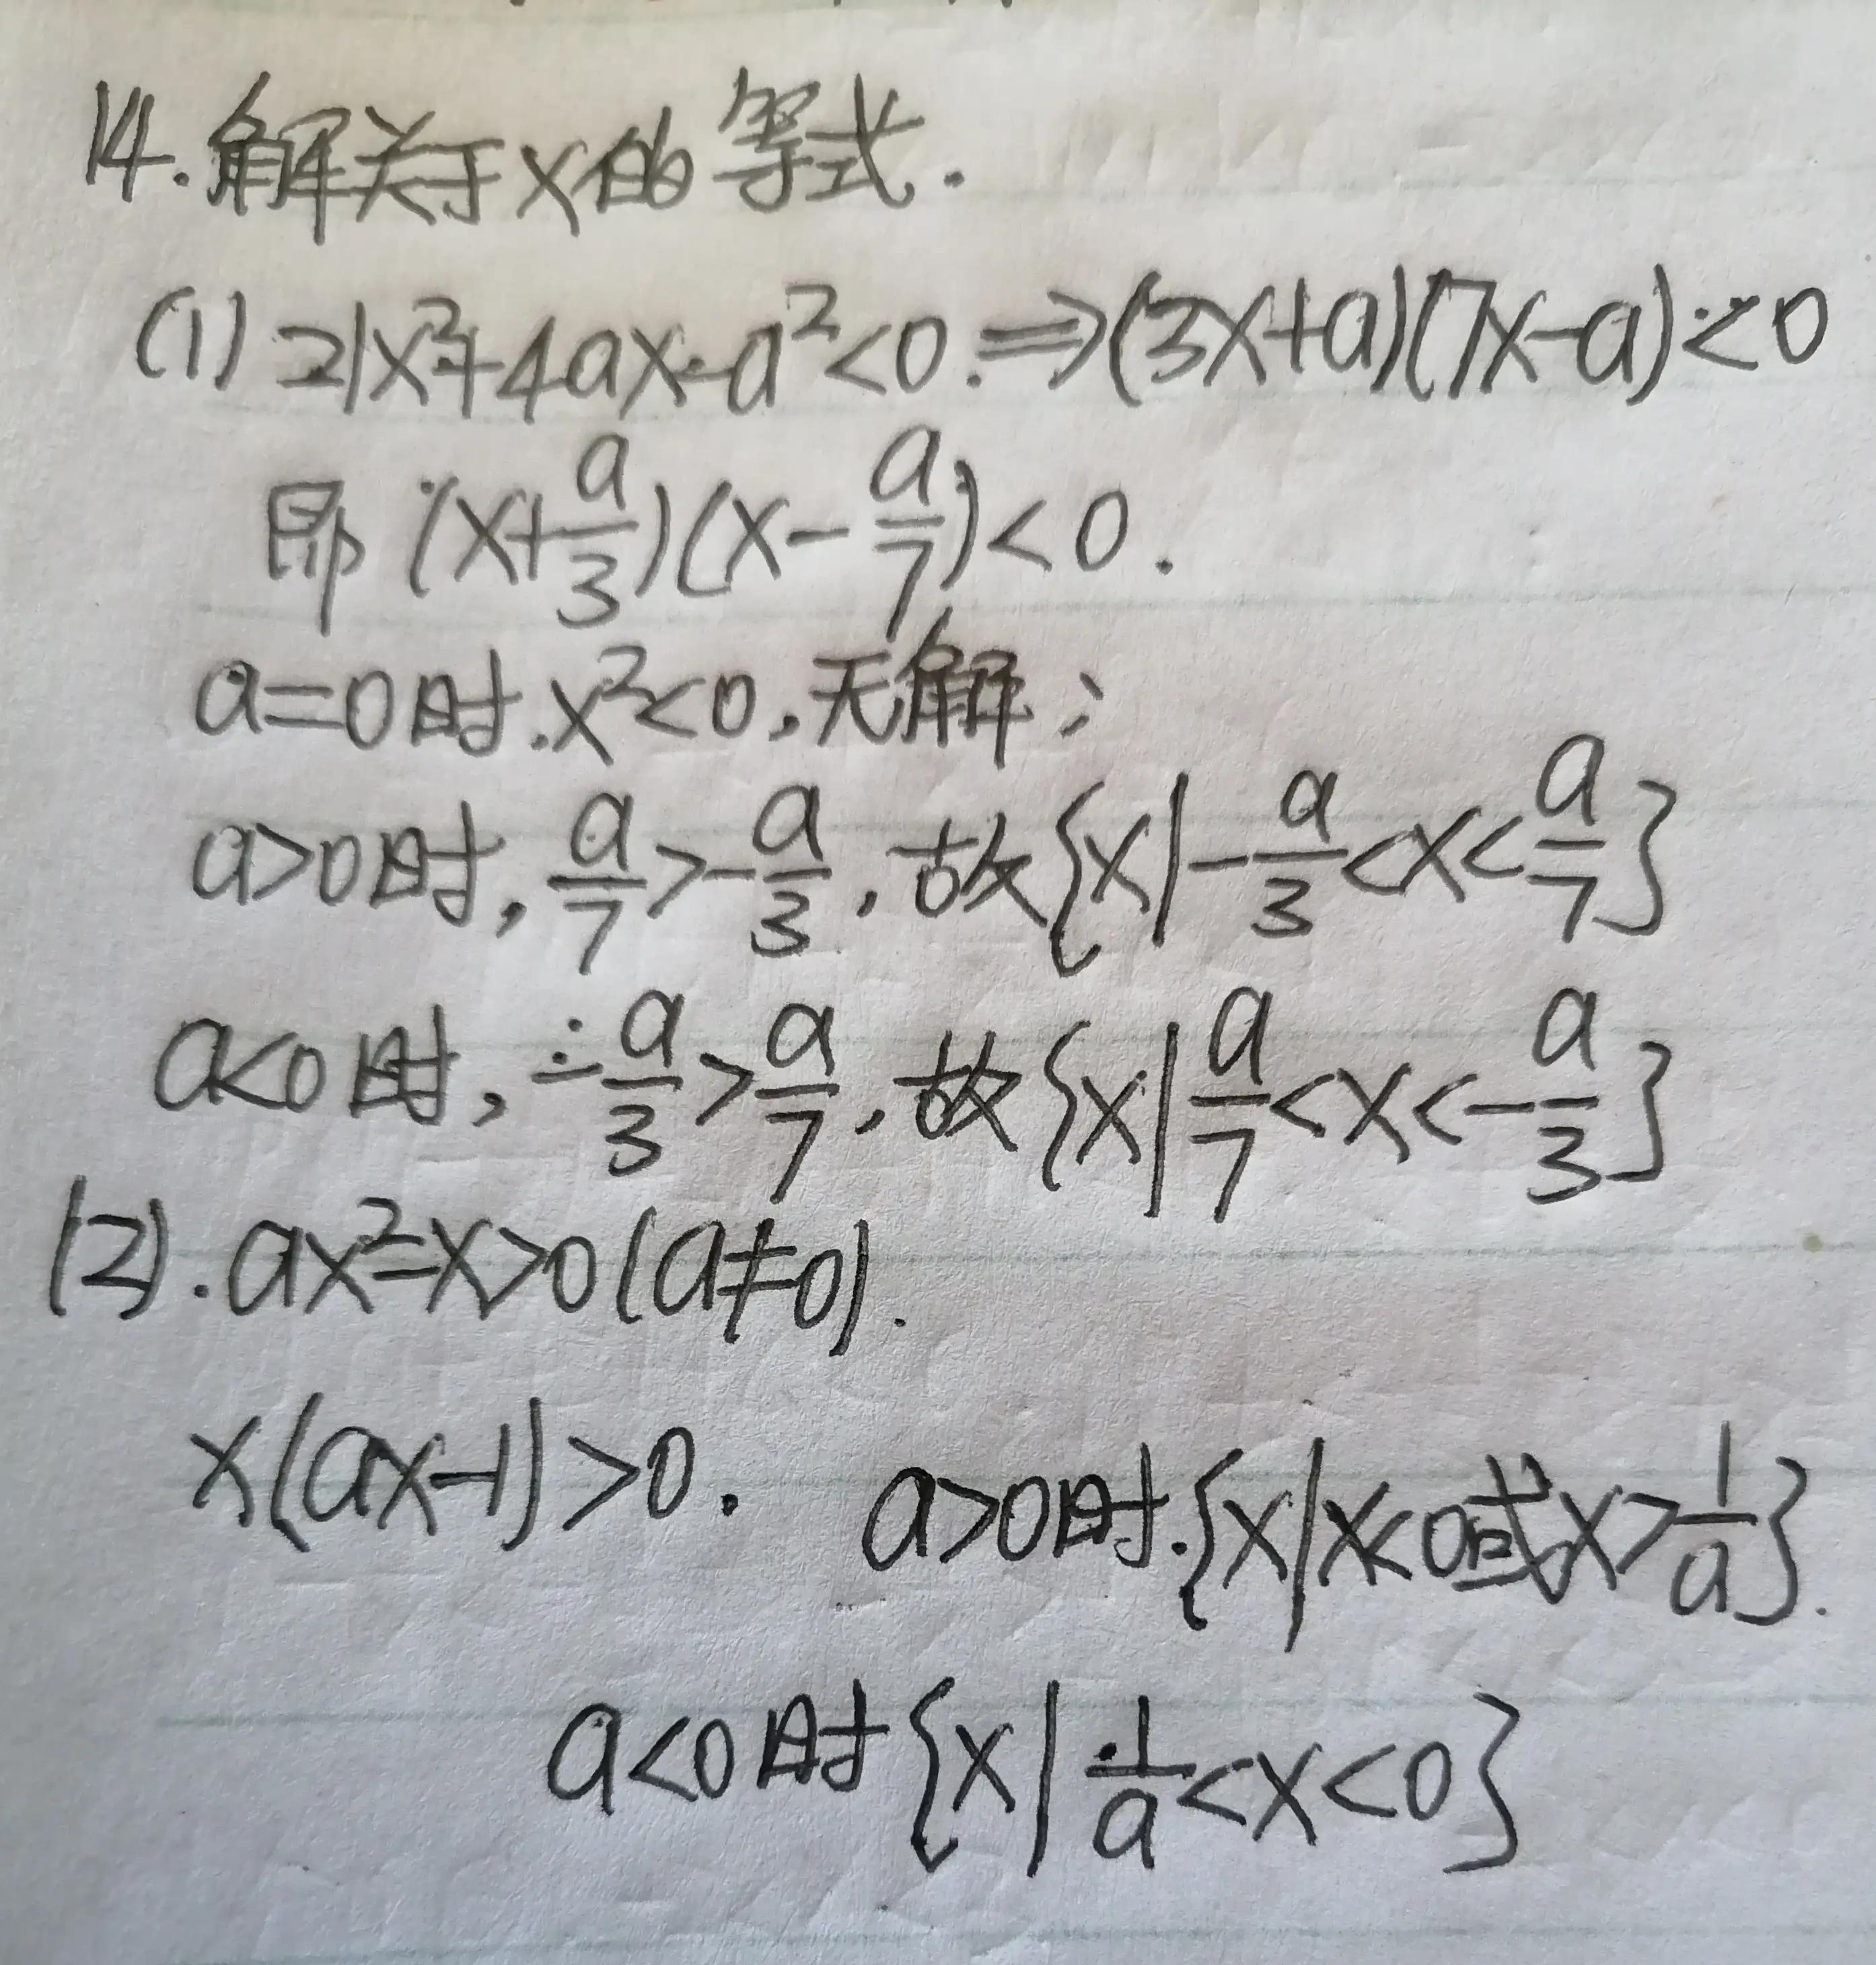 14.解关于x的等式.
(1) 21x²+4ax-a²<0.⇒(3x+a)(7x-a)<0
即 (x+a/3)(x-a/7)<0.
a=0时.x²<0,无解;
a>0时,a/7>-a/3,故{x|-a/3<x<a/7}
a<0时,-a/3>a/7,故{x|a/7<x<-a/3}
(2).ax²-x>0(a≠0).
x(ax-1)>0. a>0时.{x|x<0或x>1/a}.
a<0时{x|1/a<x<0}